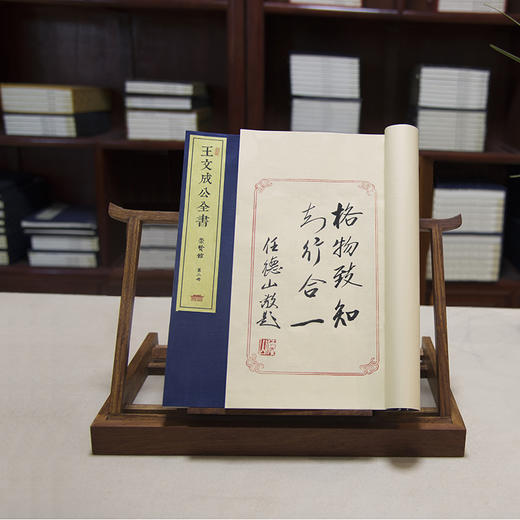 王文成公全書
崇賢館
第二册
格物致知
知行合一
任德山敬題